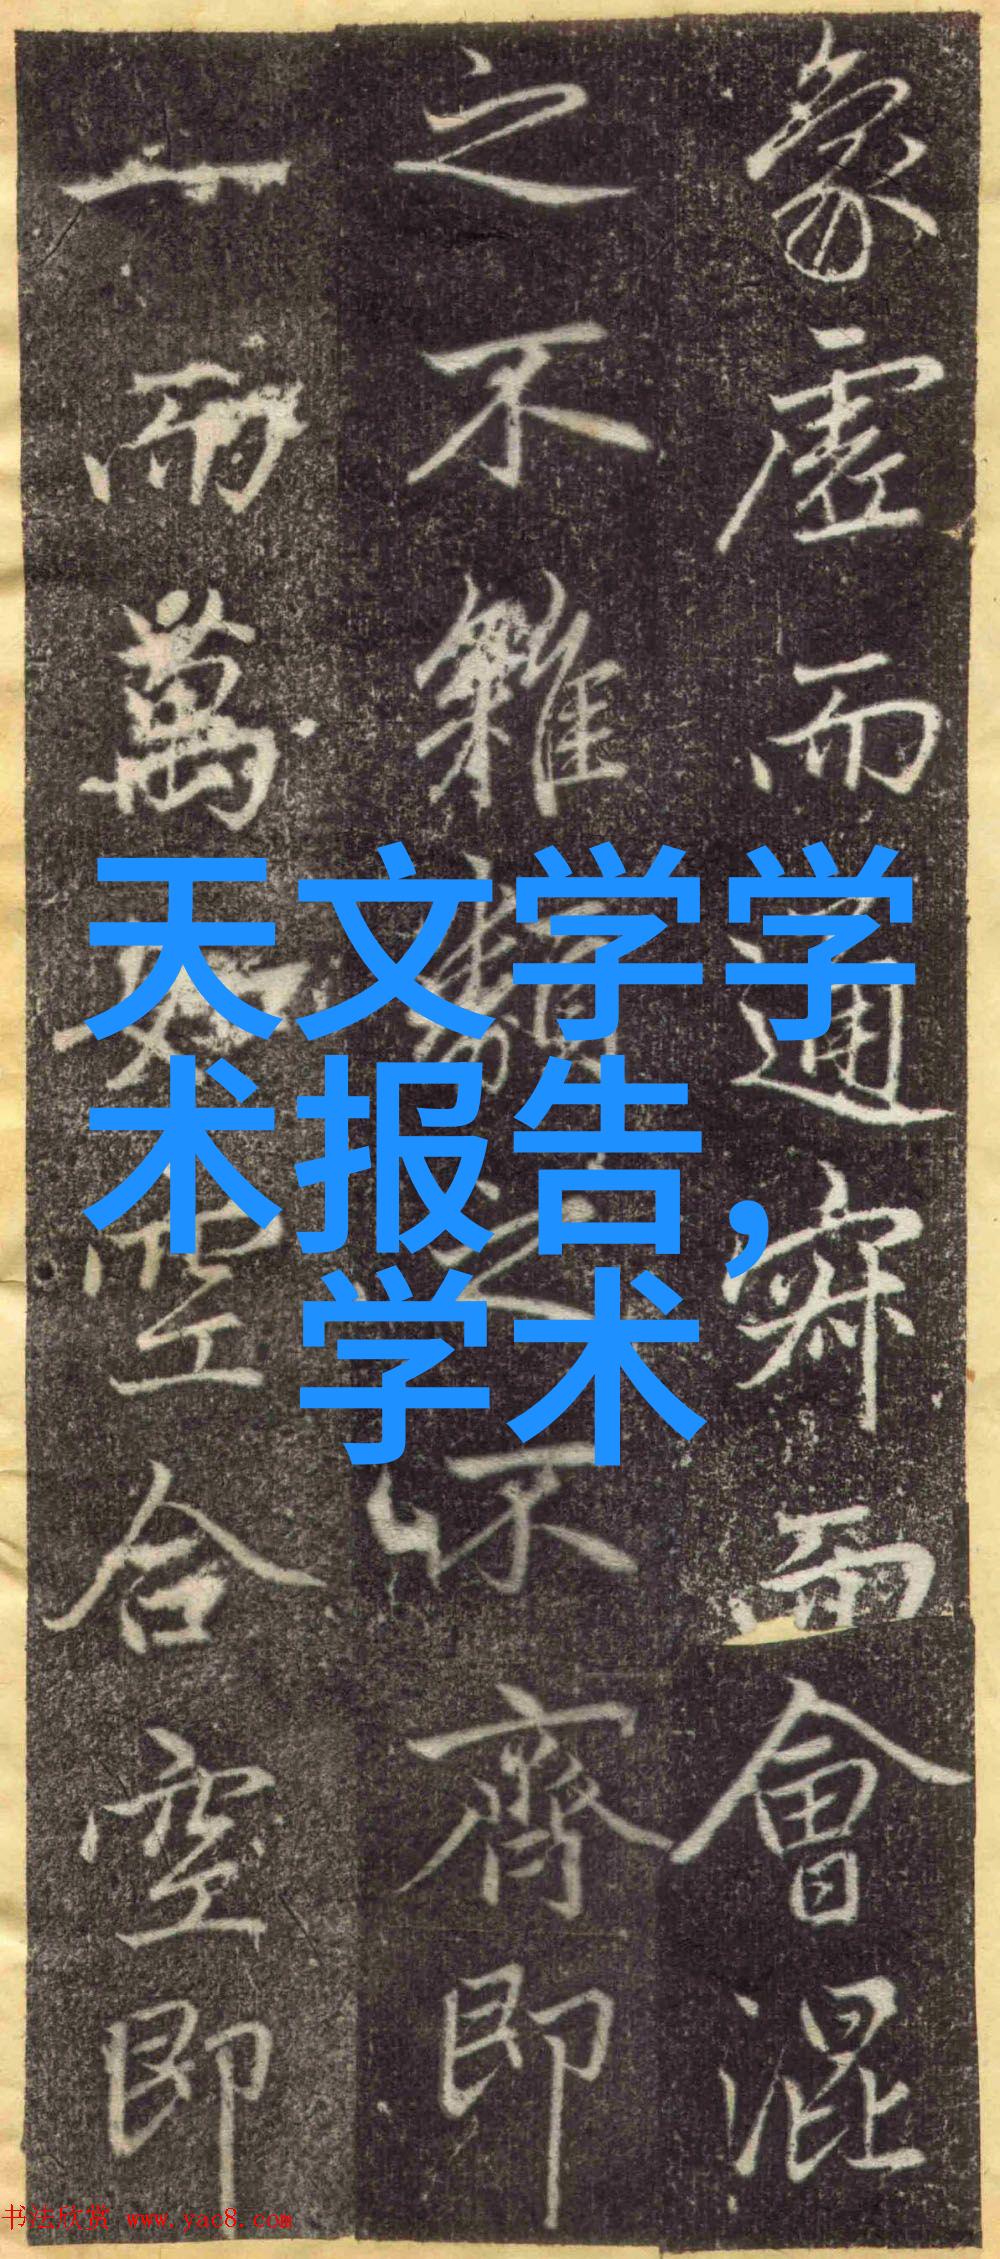 象虛而通寂而會混
之不雜之不齊即
一而萬如空合空即
天文学学
术报告，
学术
书法欣赏 www.yac8.com